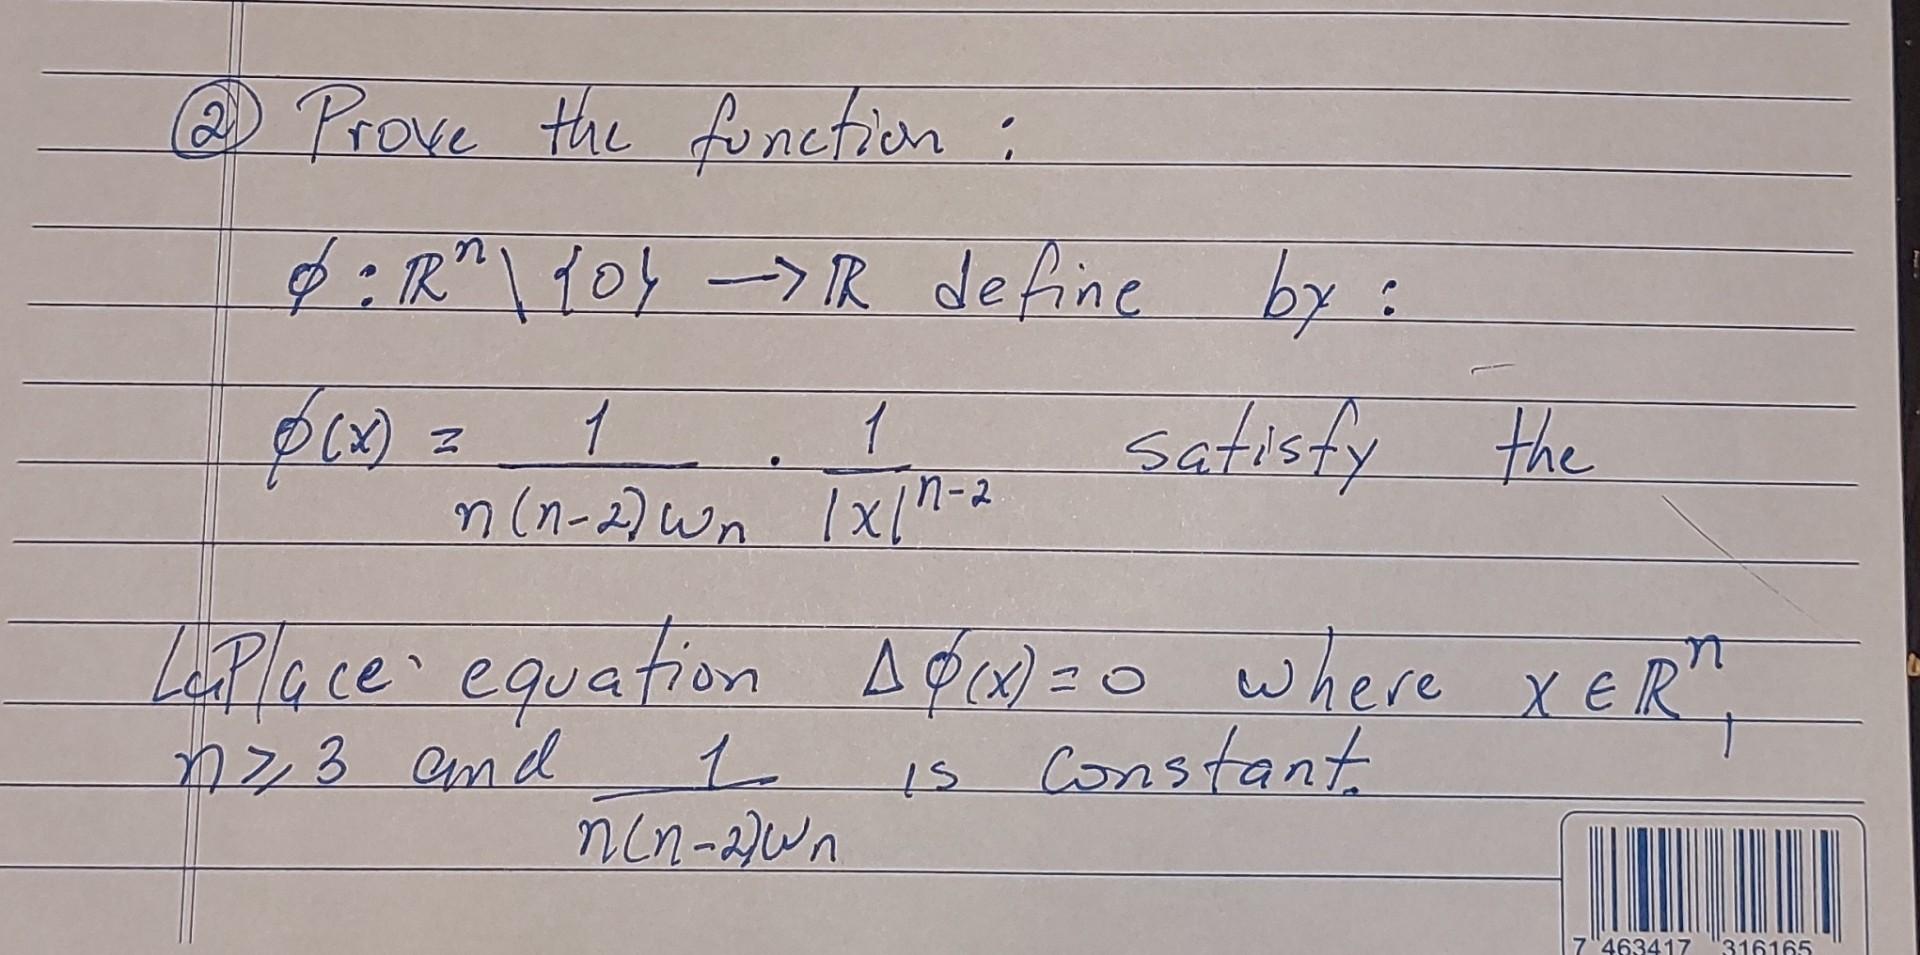 ② Prove the function :
ϕ : ℝⁿ \ {0} → ℝ define by :
ϕ(x) = 1/(n(n-2)ωn) · 1/|x|ⁿ⁻² satisfy the
LaPlace equation Δϕ(x) = 0 where x ∈ ℝⁿ,
n ≥ 3 and 1/(n(n-2)ωn) is constant.
7 463417 316165